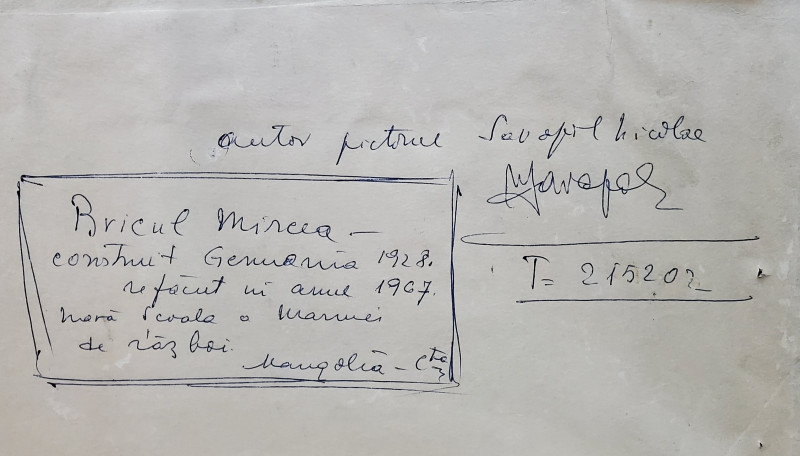 autor pictorul Savopil Nicolae
Bricul Mircea –
construit Germania 1928.
refăcut în anul 1967.
Navă Scoala a Marinei
de război.
Mangalia – Cța
T= 215202